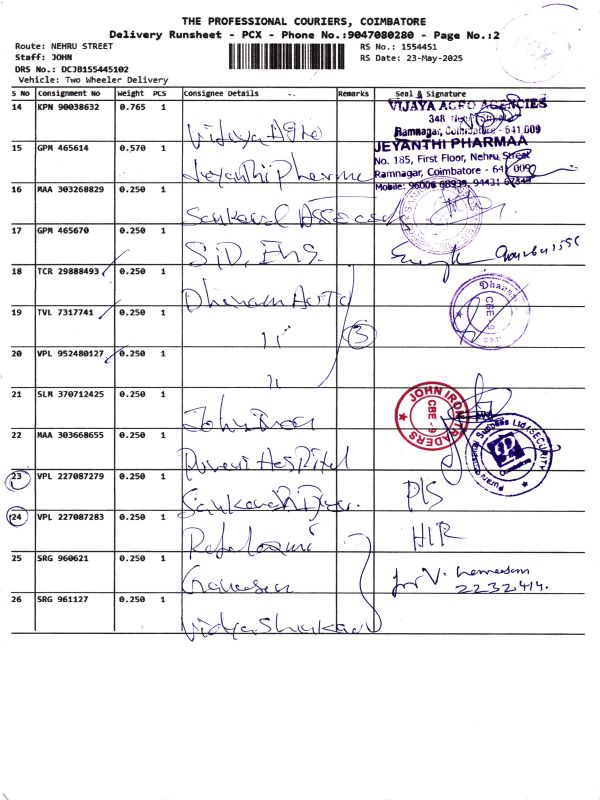 THE PROFESSIONAL COURIERS, COIMBATORE
Delivery Runsheet - PCX - Phone No.:9047080280 - Page No.:2
Route: NEHRU STREET
RS No.: 1554451
Staff: JOHN
RS Date: 23-May-2025
DRS No.: DCJB155445102
Vehicle: Two Wheeler Delivery
S No Consignment No Weight PCS Consignee Details Remarks Seal & Signature
14 KPN 90038632 0.765 1 Vidaya Agro
VIJAYA AGRO AGENCIES
348,
Ramnagar, Coimbatore - 641 009
15 GPM 465614 0.570 1 Jeyanthi Pharma
JEYANTHI PHARMAA
No. 185, First Floor, Nehru Street
Ramnagar, Coimbatore - 641 009
Mobile: 96006 68939, 94431 67349
16 MAA 303268829 0.250 1 Sankaral Associates
17 GPM 465670 0.250 1 S.D. Eng.
18 TCR 29888493 0.250 1 Dhanam Auto
Dhana
CBE - 9
19 TVL 7317741 0.250 1 11
3
20 VPL 952480127 0.250 1 11
21 SLM 370712425 0.250 1 John Iron
JOHN IRON TRADERS
CBE - 9
22 MAA 303668655 0.250 1 Purani Hospital
SECURITY
Coimbatore
23 VPL 227087279 0.250 1
P/S
24 VPL 227087283 0.250 1 Rajalaxmi
H/R
25 SRG 960621 0.250 1 Ganesan
for V.
2232414.
26 SRG 961127 0.250 1 Vidya Shankar